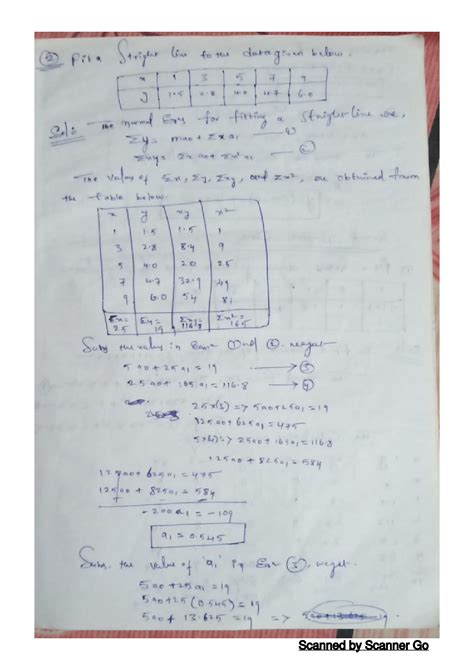 ② Fit a Straight line to the data given below.
x 1 3 5 7 9
y 1.5 2.8 4.0 4.7 6.0
Sol: The normal Eqns for fitting a Straight line are,
Σy = ma0 + Σx a1 — ①
Σxy = Σx a0 + Σx² a1 — ②
The values of Σx, Σy, Σxy, and Σx², are obtained from
the table below.
x y xy x²
1 1.5 1.5 1
3 2.8 8.4 9
5 4.0 20 25
7 4.7 32.9 49
9 6.0 54 81
Σx= 25 Σy= 19 Σxy= 116.8 Σx²= 165
Subs the values in Eqn ① and ②. we get
5a0 + 25a1 = 19 → ③
25a0 + 165a1 = 116.8 → ④
25x(3) => 5a0+25a1=19
125a0+625a1=475
5x(4)=> 25a0+165a1=116.8
125a0+825a1=584
125a0+625a1=475
125a0+825a1=584
-200a1=-109
a1=0.545
Subs. the value of 'a1' in Eqn ③, we get.
5a0+25a1=19
5a0+25(0.545)=19
5a0+13.625=19 =>
Scanned by Scanner Go